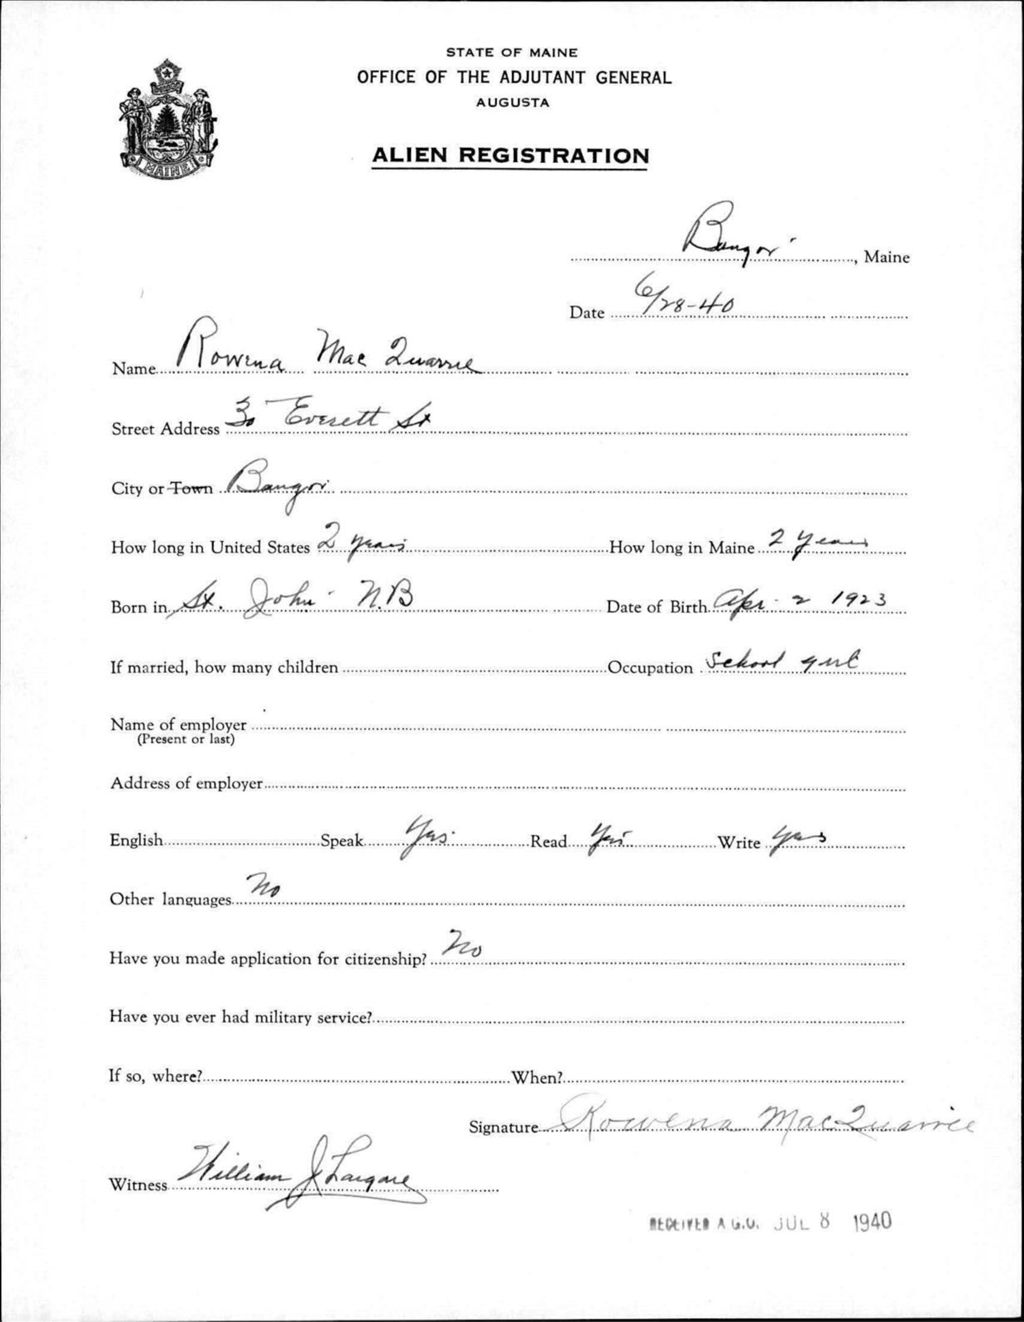 STATE OF MAINE
OFFICE OF THE ADJUTANT GENERAL
AUGUSTA
ALIEN REGISTRATION
MAINE
Bangor, Maine
Date 6/28-40
Name Rowena Mac Quarrie
Street Address 30 Everett St
City or Town Bangor
How long in United States 2 years How long in Maine 2 years
Born in St. John N.B Date of Birth Apr 2 1923
If married, how many children Occupation School girl
Name of employer
(Present or last)
Address of employer
English Speak Yes Read Yes Write yes
Other languages No
Have you made application for citizenship? No
Have you ever had military service?
If so, where? When?
Signature Rowena MacQuarrie
Witness William J
RECEIVED A.G.O. JUL 8 1940